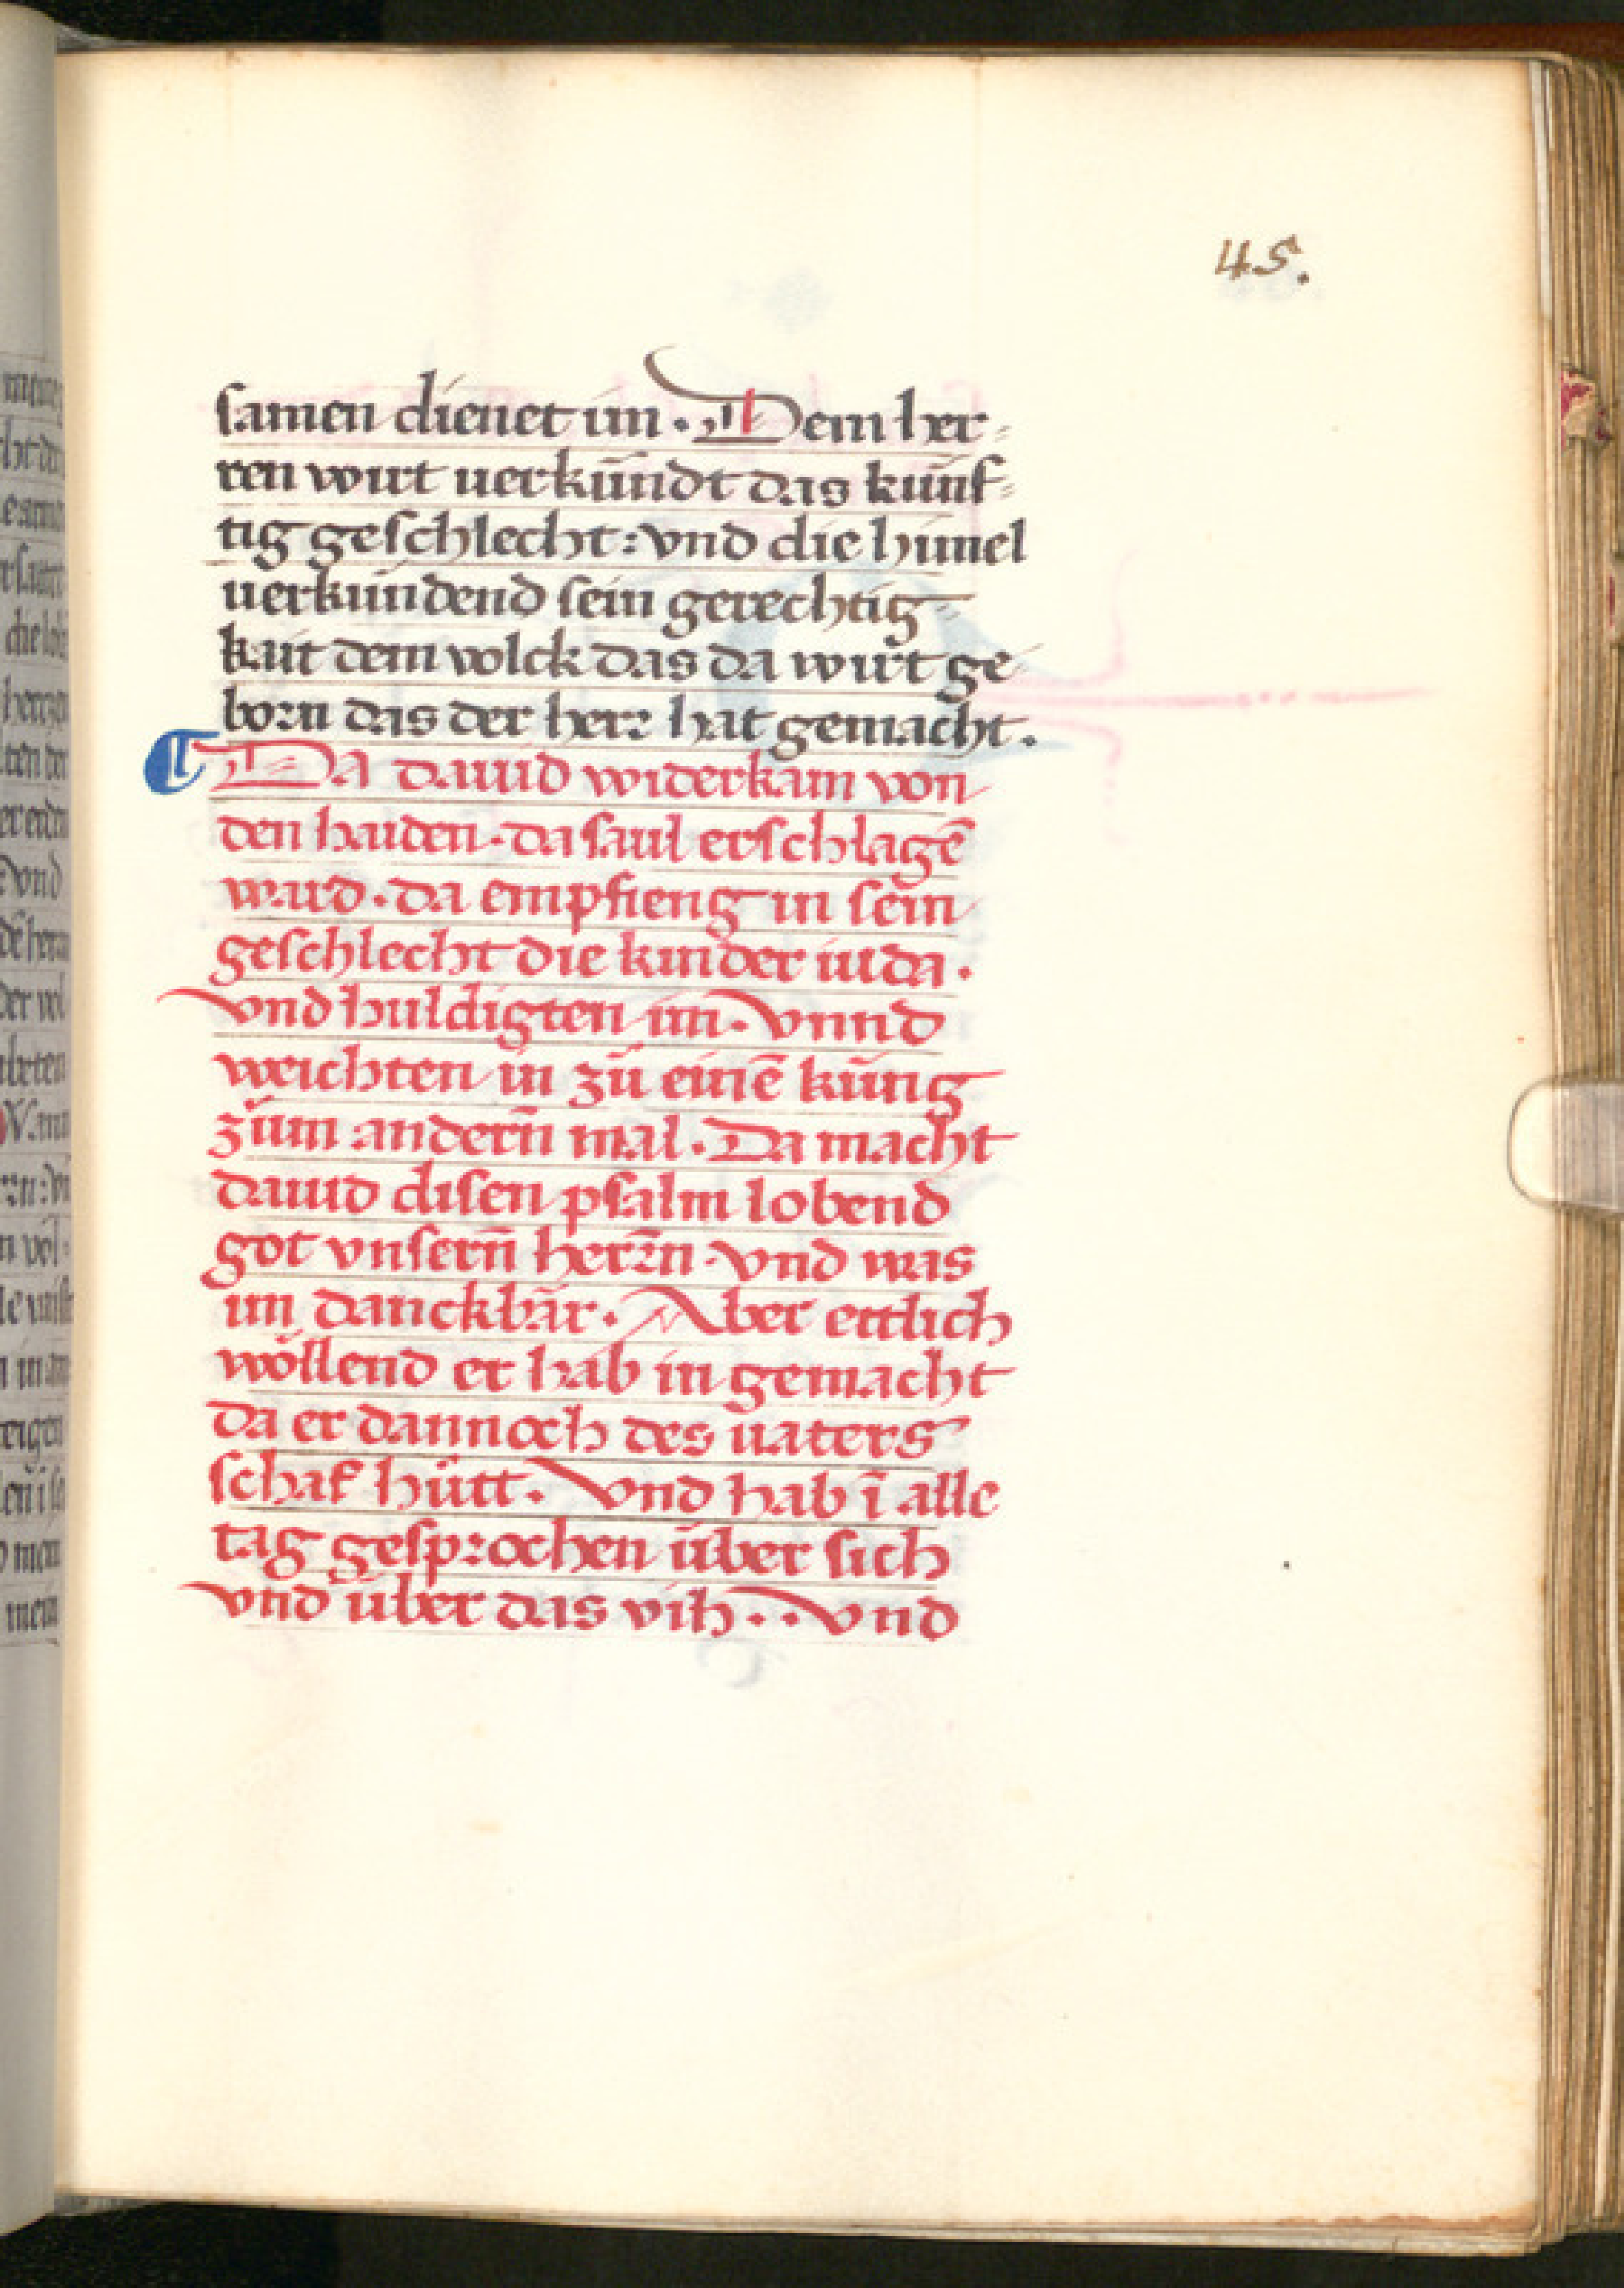 45.
samen dienet im · Dem her-
ren wirt uerkündt das künf-
tig geschlecht: vnd die himel
uerkündend sein gerechtig-
kait dem volck das da wirt ge-
born das der herr hat gemacht.
¶ Da dauid widerkam von
den haiden · da saul erschlagē
ward · da empfieng in sein
geschlecht die kinder iuda ·
vnd huldigten im · Vnnd
weichten in zů einē küng
zům andern̄ mal · Da macht
dauid disen psalm lobend
got vnsern̄ herrn̄ · vnd was
im danckbär · Aber ettlich
wöllend er hab in gemacht
da er dannoch des uaters
schaf hütt · Vnd hab ī alle
tag gesprochen über sich
vnd über das vih · · vnd